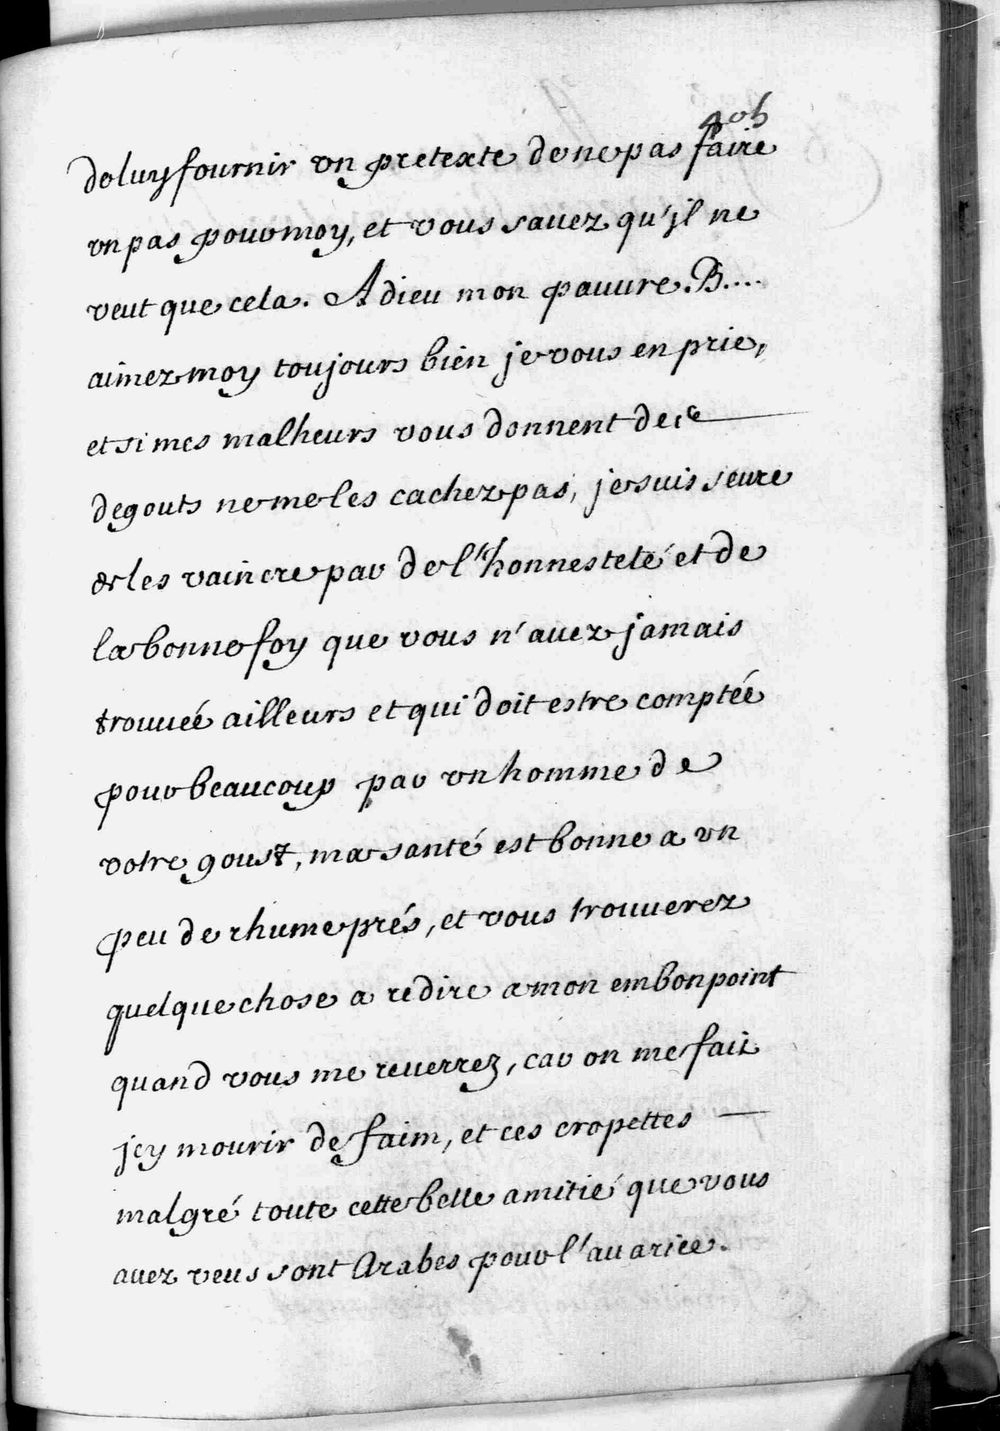 405
de luy fournir vn pretexte de ne pas faire
vn pas pour moy, et vous sauez qu'jl ne
veut que cela. Adieu mon pauure B....
aimez moy toujours bien je vous en prie,
et si mes malheurs vous donnent de ce
degouts ne me les cachez pas, je suis seure
de les vaincre par de l'honnesteté et de
la bonne foy que vous n'auez jamais
trouuée ailleurs et qui doit estre comptée
pour beaucoup par vn homme de
votre goust, ma santé est bonne a vn
peu de rhume prés, et vous trouuerez
quelque chose a redire a mon embonpoint
quand vous me reuerrez, car on me fait
jcy mourir de faim, et ces cropettes —
malgré toute cette belle amitié que vous
auez veus sont Arabes pour l'auarice.